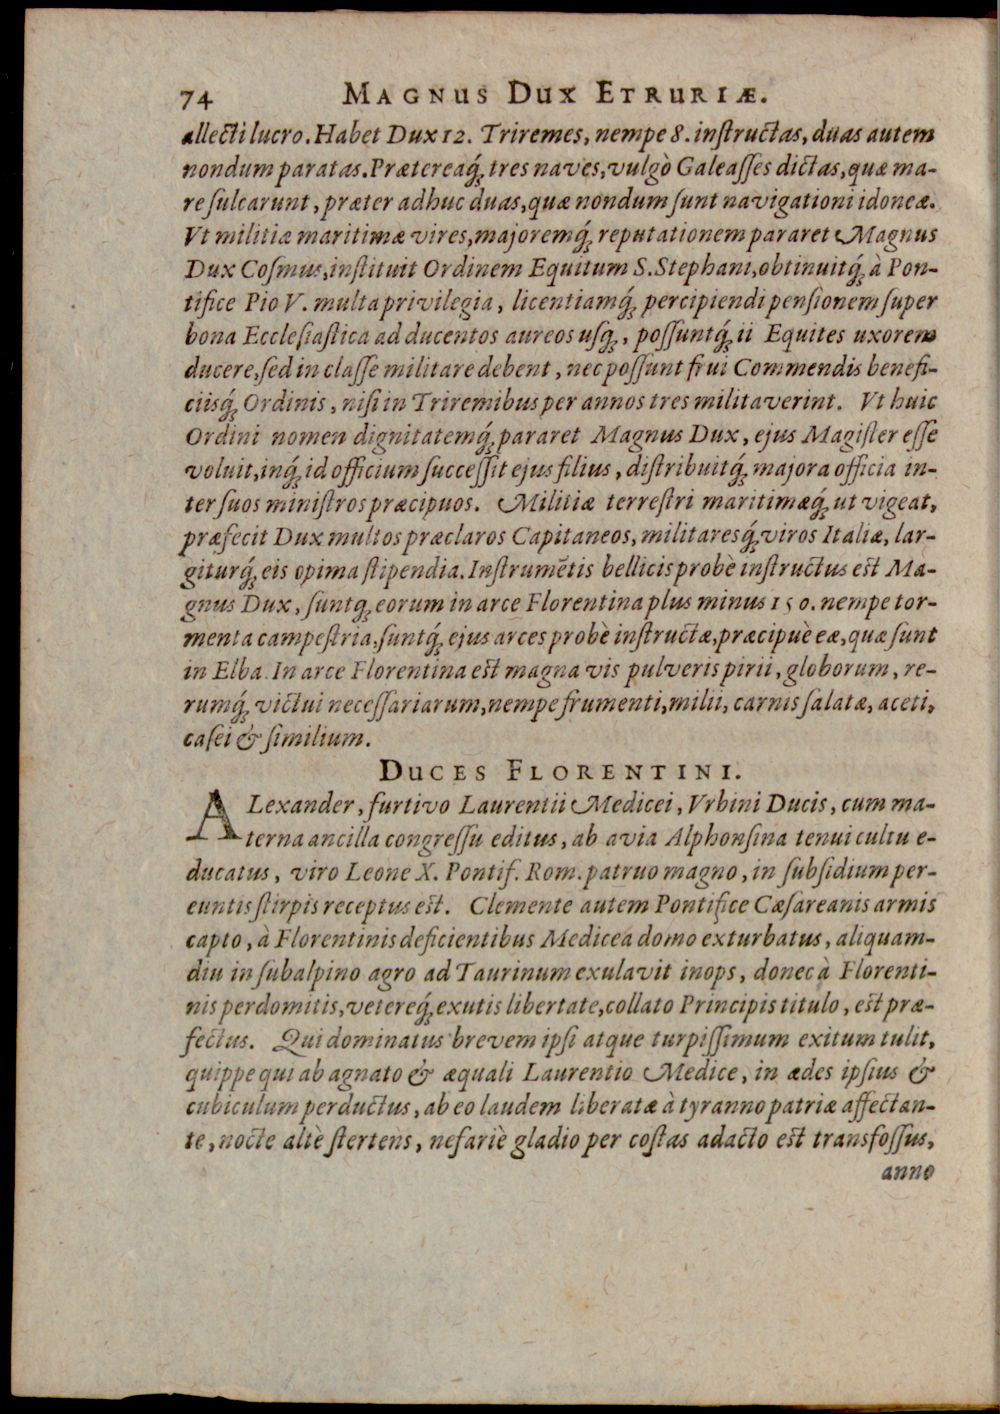 74 MAGNUS DUX ETRURIÆ.
allecti lucro. Habet Dux 12. Triremes, nempe 8. inſtructas, duas autem
nondum paratas. Prætereaq́; tres naves, vulgò Galeaſſes dictas, quæ ma-
re ſulcarunt, præter adhuc duas, quæ nondum ſunt navigationi idoneæ.
Vt militiæ maritimæ vires, majoremq́; reputationem pararet Magnus
Dux Coſmus, inſtituit Ordinem Equitum S. Stephani, obtinuitq́; à Pon-
tifice Pio V. multa privilegia, licentiamq́; percipiendi penſionem ſuper
bona Eccleſiaſtica ad ducentos aureos uſq;, poſſuntq́; ii Equites uxorem
ducere, ſed in claſſe militare debent, nec poſſunt frui Commendis benefi-
ciisq́; Ordinis, niſi in Triremibus per annos tres militaverint. Vt huic
Ordini nomen dignitatemq́; pararet Magnus Dux, ejus Magiſter eſſe
voluit, inq́; id officium ſucceſſit ejus filius, diſtribuitq́; majora officia in-
ter ſuos miniſtros præcipuos. Militiæ terreſtri maritimæq́; ut vigeat,
præfecit Dux multos præclaros Capitaneos, militaresq́; viros Italiæ, lar-
giturq́; eis opima ſtipendia. Inſtrumētis bellicis probè inſtructus eſt Ma-
gnus Dux, ſuntq; eorum in arce Florentina plus minus 150. nempe tor-
menta campeſtria, ſuntq́; ejus arces probè inſtructæ, præcipuè eæ, quæ ſunt
in Elba. In arce Florentina eſt magna vis pulveris pirii, globorum, re-
rumq́; victui neceſſariarum, nempe frumenti, milii, carnis ſalatæ, aceti,
caſei & ſimilium.
DUCES FLORENTINI.
ALexander, furtivo Laurentii Medicei, Vrbini Ducis, cum ma-
terna ancilla congreſſu editus, ab avia Alphonſina tenui cultu e-
ducatus, viro Leone X. Pontif. Rom. patruo magno, in ſubſidium per-
euntis ſtirpis receptus eſt. Clemente autem Pontifice Cæſareanis armis
capto, à Florentinis deficientibus Medicea domo exturbatus, aliquam-
diu in ſubalpino agro ad Taurinum exulavit inops, donec à Florenti-
nis perdomitis, vetereq́; exutis libertate, collato Principis titulo, eſt præ-
fectus. Qui dominatus brevem ipſi atque turpiſſimum exitum tulit,
quippe qui ab agnato & æquali Laurentio Medice, in ædes ipſius &
cubiculum perductus, ab eo laudem liberatæ à tyranno patriæ affectan-
te, nocte altè ſtertens, nefariè gladio per coſtas adacto eſt transfoſſus,
anno